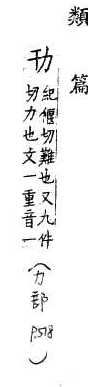 類篇
紀偃切難也又九件
切力也文一重音一
(力部 P.518)